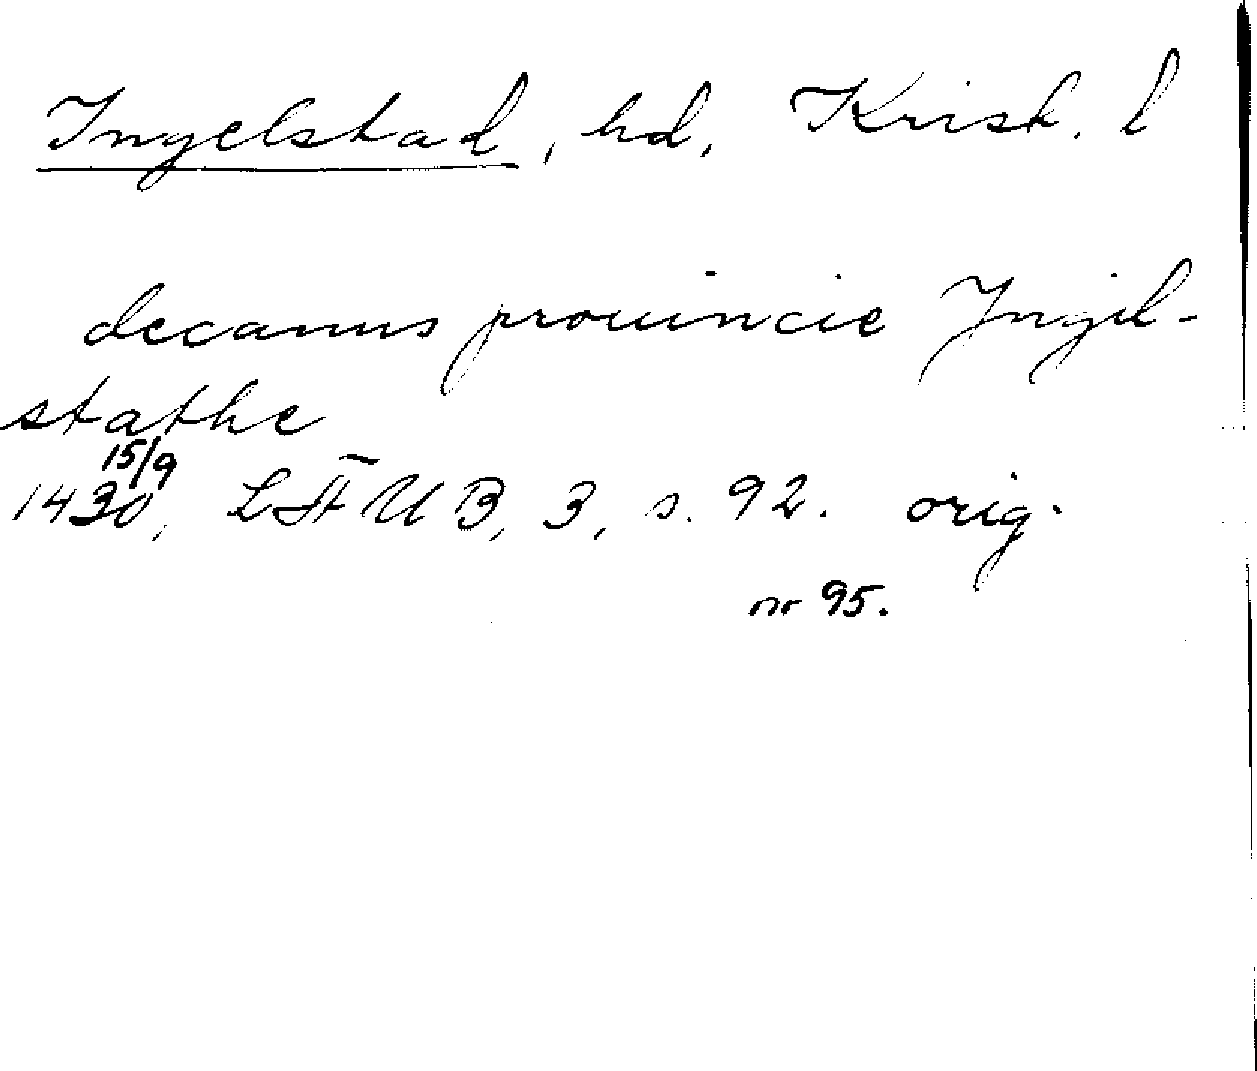 Ingelstad, hd, Krist. l
decanus prouincie Ingil-
stathe
15/9
1430, LÄUB, 3, s. 92. orig.
nr 95.